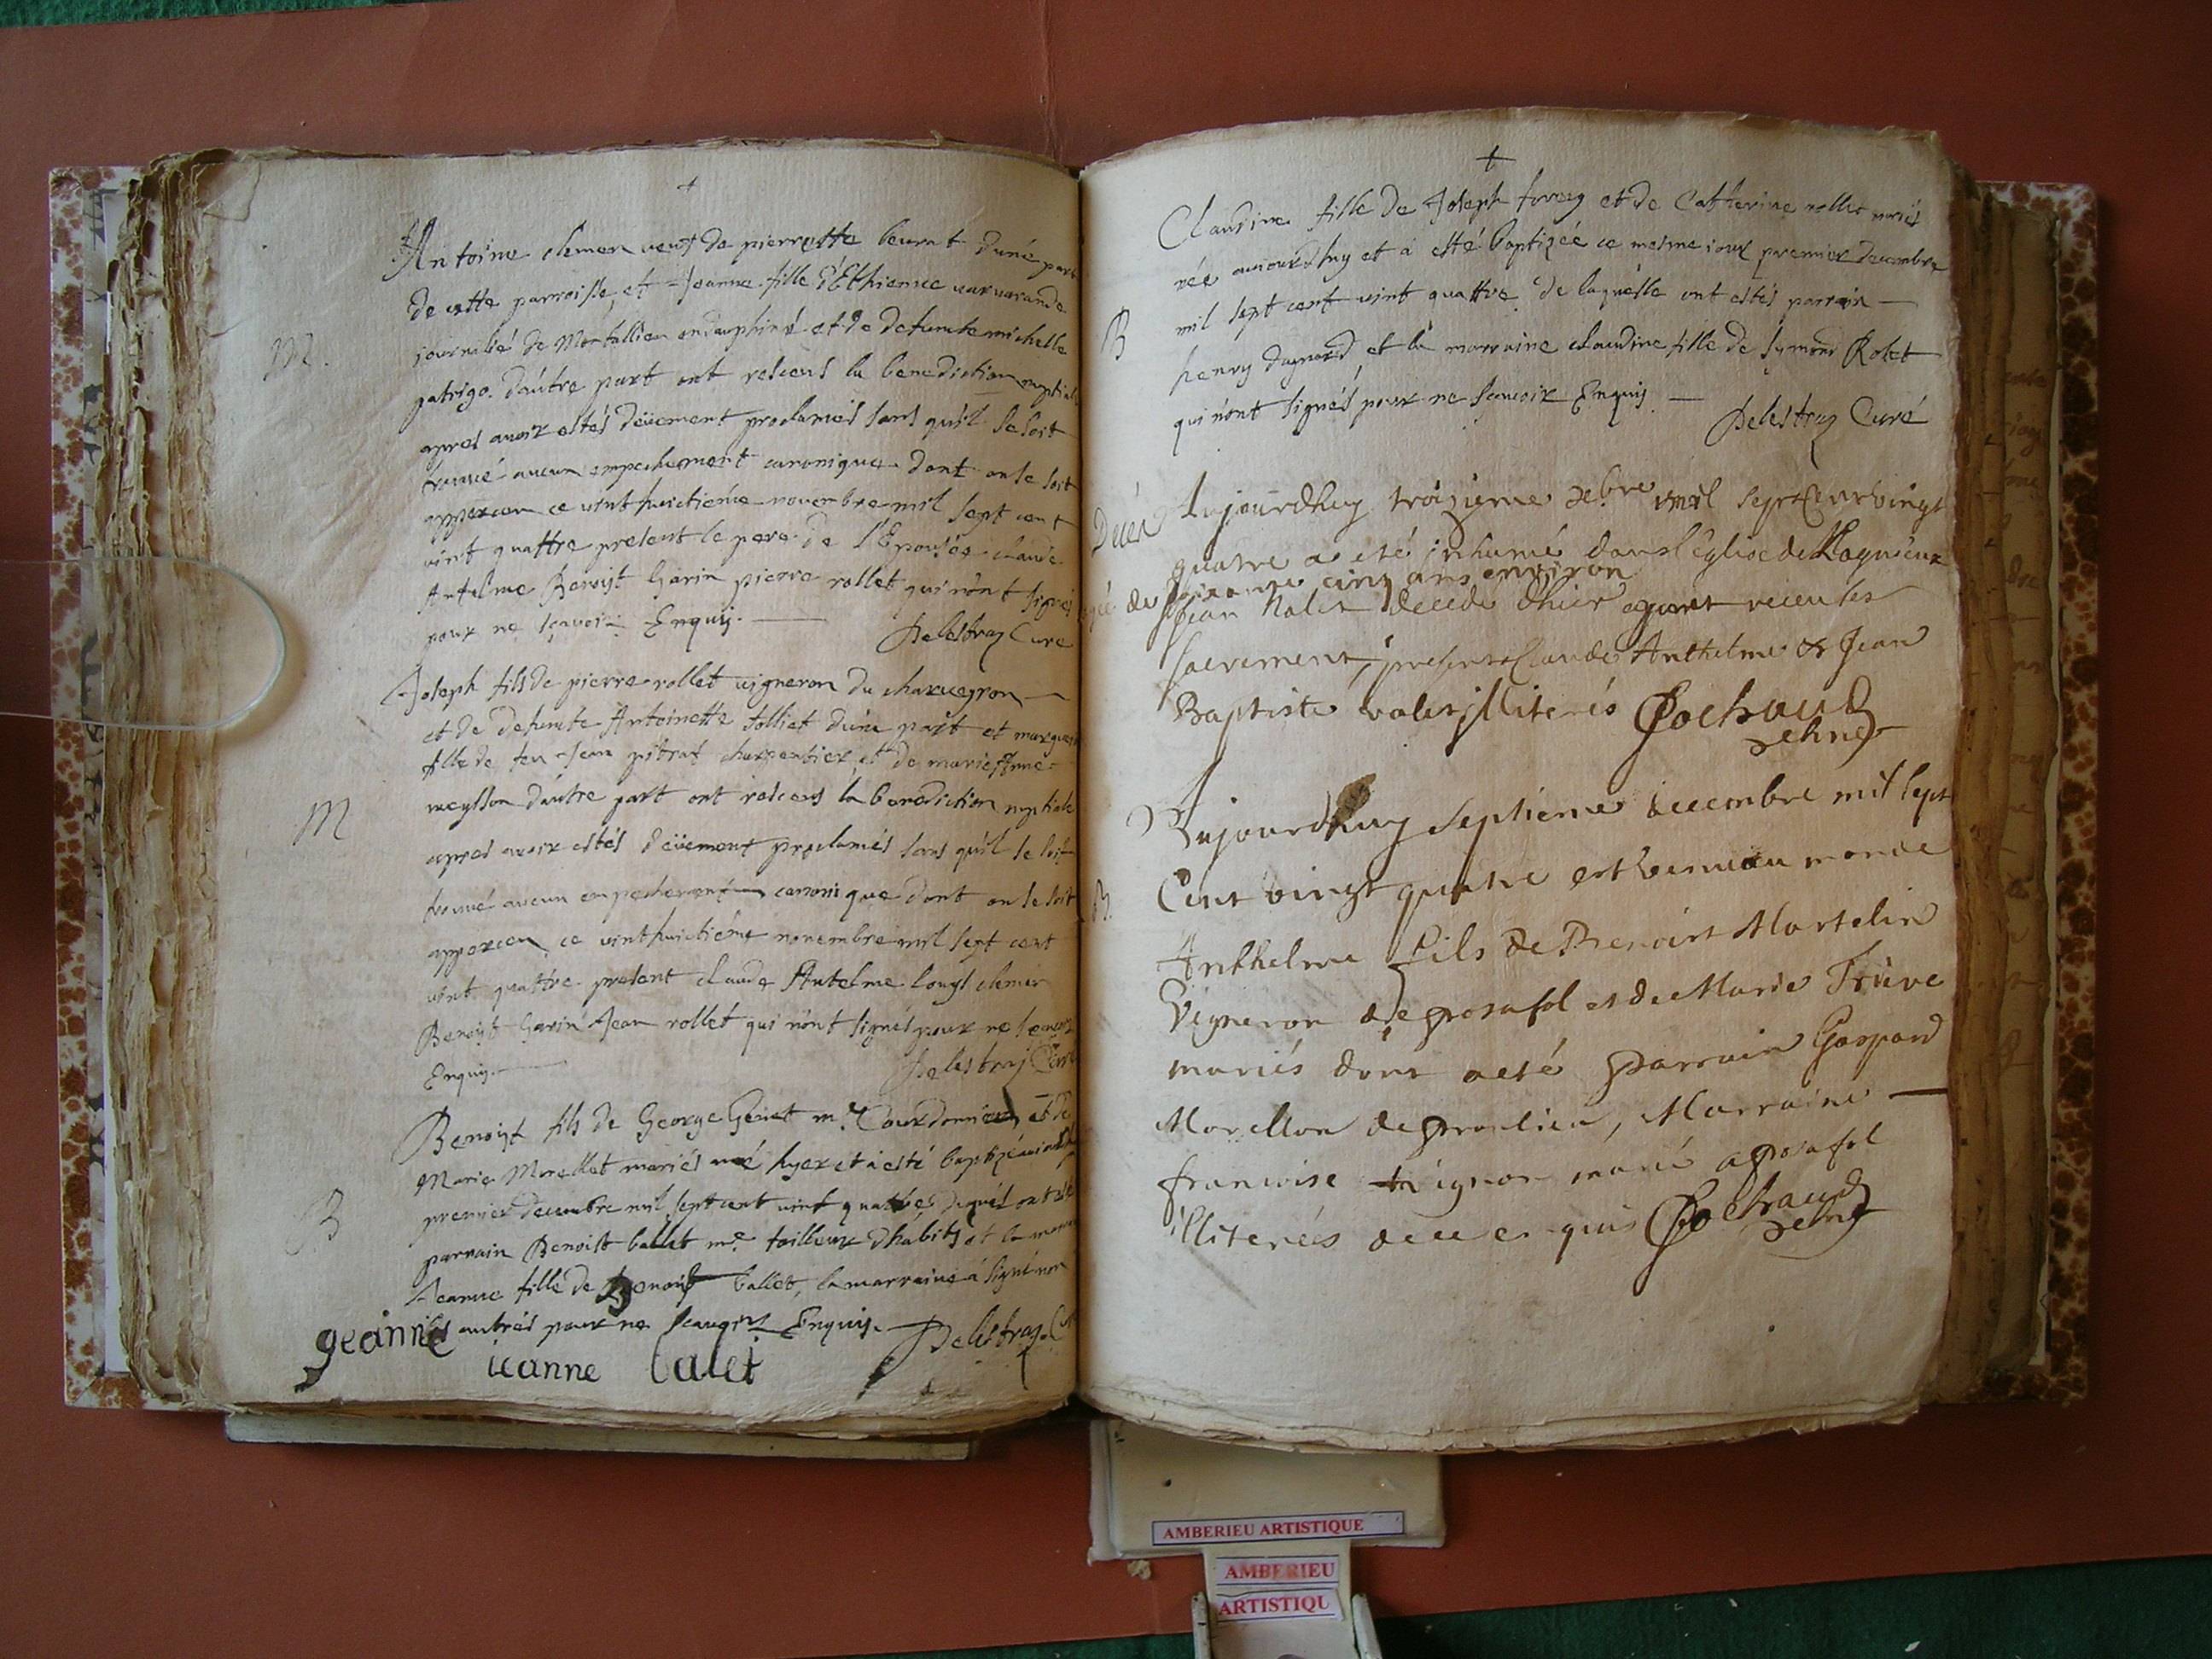 +
Antoine clemen veuf de pierrette beurat d'une part
de cette parroisse, et Jeanne fille d'Ethienne
journalié de Montallieu en dauphiné et de defuncte michelle
patrigo d'autre part ont reseus la benediction nuptiale
M.
apres avoir estés deüement proclamés sans qu'il se soit
trouué aucun empechement canonique dont on se soit
apperceu ce vint huictieme novembre mil sept cent
vint quattre present le pere de l'Epousée claude
Antelme Benoist Garin pierre rollet qui n'ont signés
pour ne sçavoir Enquis. Delestraz Curé
Joseph fils de pierre rollet vigneron du charveyron
et de defuncte Antoinette tolliet d'une part et
fille de feu Jean pitrat charpentier et de marie Anne
meysson d'autre part ont reseus la benediction nuptiale
M
apres avoir estés deüement proclamés sans qu'il se soit
trouué aucun empechement canonique dont on se soit
apperceu ce vint huictiéme novembre mil sept cent
vint quattre present claude Antelme Louys clemen
Benoist Garin Jean rollet qui n'ont signés pour ne
Enquis. Delestraz Curé
Benoist fils de George Genet m.e Courdonnier et de
Marie Morellet mariés né hyer et à esté baptizé
premier decembre mil sept cent vint quattre duquel ont
B
parrain Benoist ballet m.e tailleur d'habits et la
Jeanne fille de Benoist ballet, la marraine à signé non
les autres pour ne Enquis. Delestraz
geanne
ieanne balet
+
Claudine fille de Joseph et de Catherine rollet mariés
née aujourdhuy et à esté baptizée ce mesme iour premier decembre
B
mil sept cent vint quattre de laquelle ont estés parrain
henry dagnard et la marraine claudine fille de symond Rolet
qui n'ont signés pour ne sçauoir Enquis
Delestraz Curé
Aujourdhuy troizieme xbre mil sept Cent vingt
quatre a eté inhumé dans l'église de Lagnieux
agé de soixante cinq ans environ
Jean decedé d'hier ayant receu les
sacrement, present Claude Anthelme & Jean
Baptiste illiterés Cochaud
Aujourdhuy septieme decembre mil sept
Cent vingt quatre est venu au monde
B.
Anthelme fils de Benoist Martelin
Vigneron de posafol et de Marie Trüve
mariés dont a eté parrain Gaspard
Morellon de proulieu, Marraine
francoise marié a posafol
illiterés de ce enquis Cochaud
AMBERIEU ARTISTIQUE
AMBERIEU
ARTISTIQU